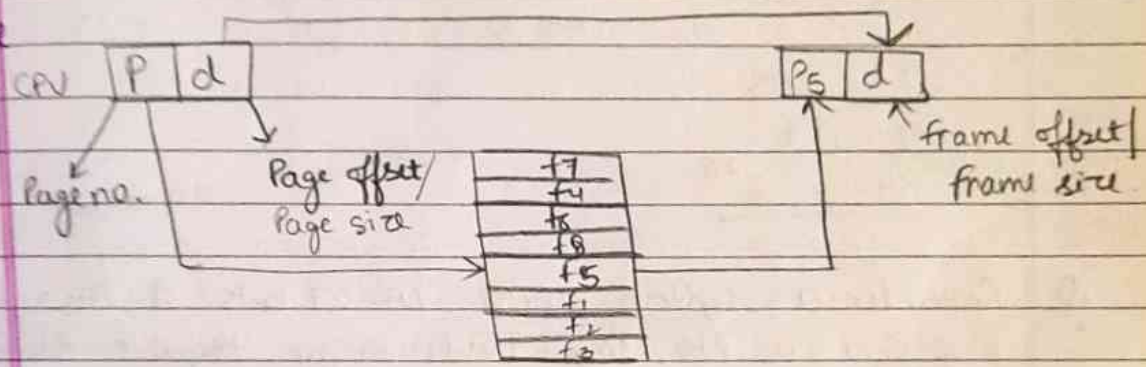 CPU P d P5 d
Page no.
Page offset/
Page size
frame offset/
frame size
f7
f4
f6
f8
f5
f1
f2
f3